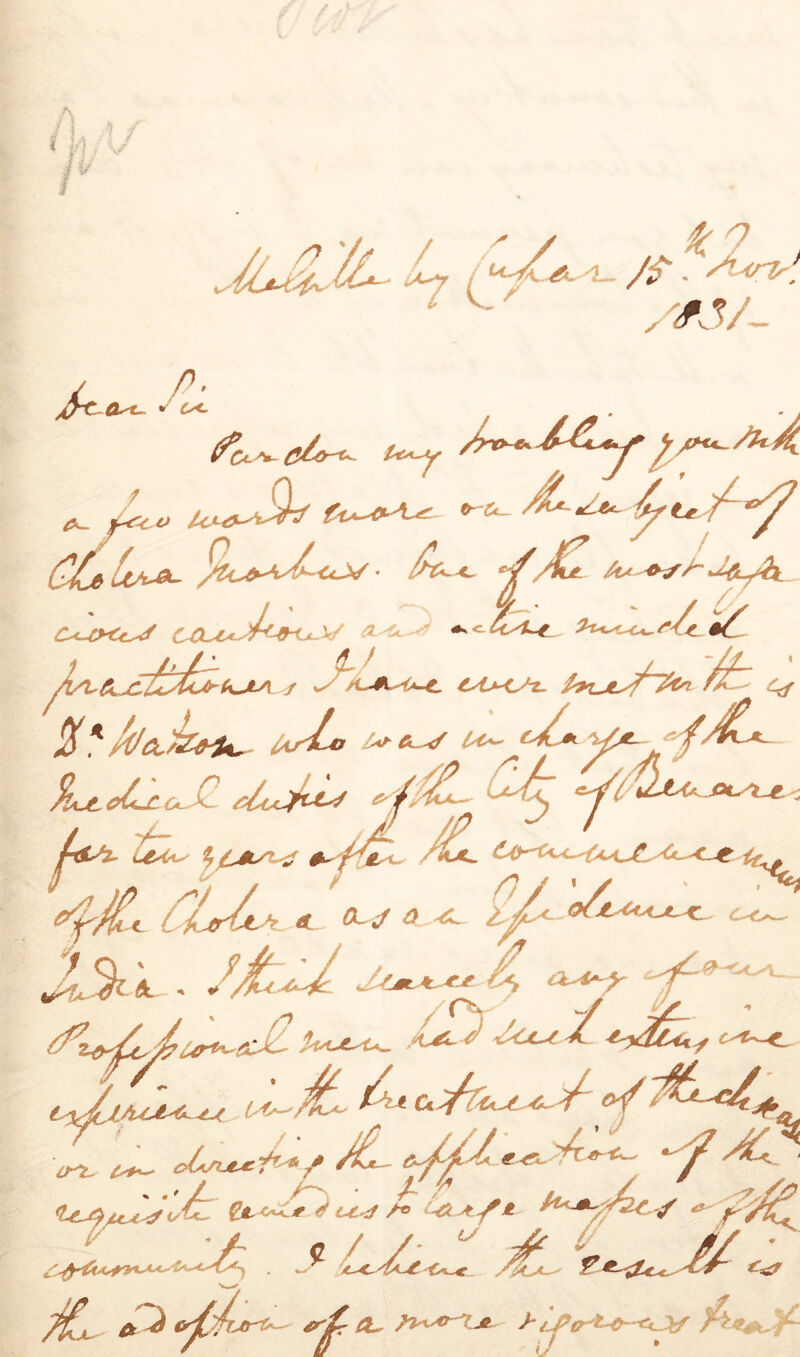 Melville by Cupar 15.th Novr.
1831 -
Dear Sir
Pardon my troubling you with
a few words more on the subject of
Cholera Morbus. One of the most saga
cious cautious and active minded
practitioners I have ever met with is
Dr. Watson who was in charge of the
Medical duties of the City of Benares
for ten years after the commencement
of the Cholera as an Epidemic in
India. I think scarcely any of our
Professional men had such extensive
experience in the treatment of the disease
or in directing the application of the
requisite remedies to large masses of the
community. I believe the result is
the adoption of a more rigorous treat